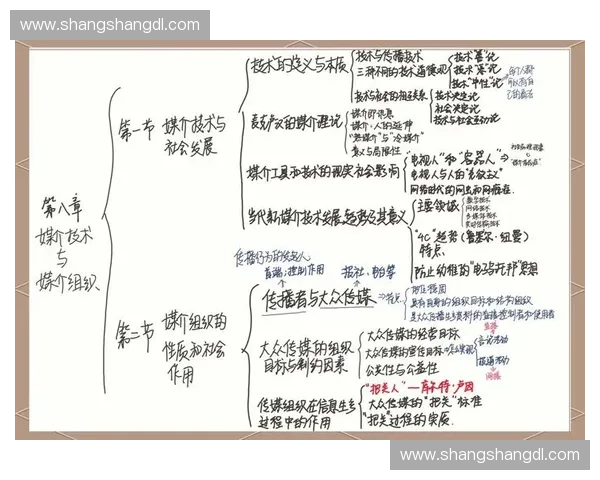 www.shangshangdl.com
第八章
媒介技术
与
媒介组织
第一节 媒介技术与
社会发展
技术的定义与本质
技术与传播技术
三种不同的技术道德观
技术"善"论
技术"恶"论
技术"中性"论
技术与社会的相互关系
技术决定论
社会决定论
技术与社会互动论
麦克卢汉的媒介理论
媒介即讯息
媒介·人的延伸
"热媒介"与"冷媒介"
意义与局限性
媒介工具和技术的现实社会影响
"电视人"和"容器人"
电视人与人的
网络时代的网虫和网瘾症
当代新媒介技术发展趋势及其意义
主要领域
数字技术
网络技术
多媒体技术
"4C"趋势(鲁塞尔·纽曼)
特点
防止幼稚的"电子乌托邦"思想
第二节 媒介组织的
性质和社会
作用
传播行为的发起人
首端:控制作用
报社、电台等
传播者与大众传媒
特点
专业集团
具有自身的组织目标和结构组织
是大众传播生产资料的直接控制者和使用者
大众传媒的组织
目标与制约因素
大众传媒的经营目标
大众传媒的宣传目标
公共性与公益性
直接
言论活动
报道活动
间接
传媒组织在信息生产
过程中的作用
"把关人"—库尔特·卢因
大众传媒的"把关"标准
"把关"过程的实质
www.shangshangdl.com